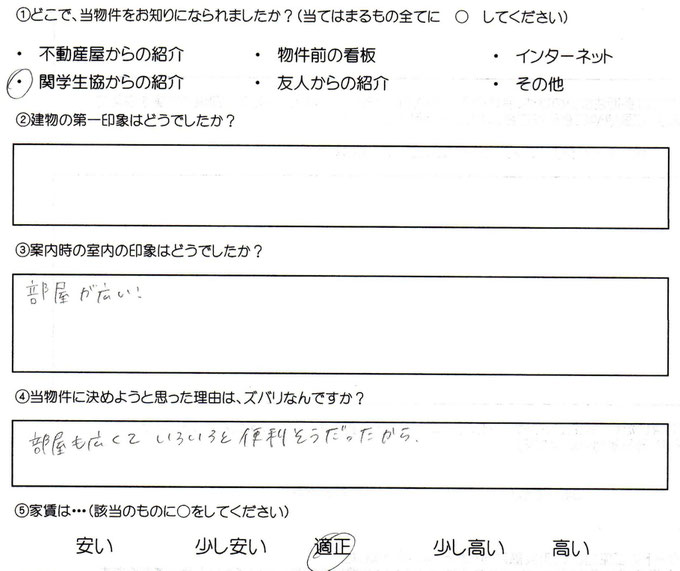 ①どこで、当物件をお知りになられましたか？（当てはまるもの全てに ○ してください）
・ 不動産屋からの紹介 ・ 物件前の看板 ・ インターネット
・ 関学生協からの紹介 ・ 友人からの紹介 ・ その他
②建物の第一印象はどうでしたか？
③案内時の室内の印象はどうでしたか？
部屋が広い！
④当物件に決めようと思った理由は、ズバリなんですか？
部屋も広くて いろいろと便利そうだったから.
⑤家賃は…（該当のものに○をしてください）
安い 少し安い 適正 少し高い 高い